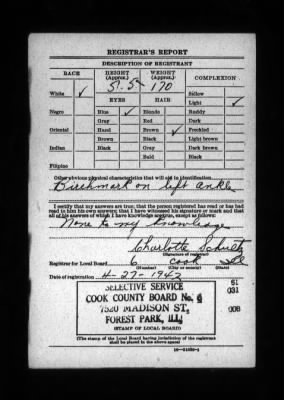 REGISTRAR'S REPORT
DESCRIPTION OF REGISTRANT
RACE HEIGHT (Approx.) WEIGHT (Approx.) COMPLEXION
5' 5" 170
White ✓ Sallow
EYES HAIR Light ✓
Negro Blue ✓ Blonde Ruddy
Gray Red Dark
Oriental Hazel Brown ✓ Freckled
Brown Black Light brown
Indian Black Gray Dark brown
Bald Black
Filipino
Other obvious physical characteristics that will aid in identification
Birthmark on left ankle
I certify that my answers are true; that the person registered has read or has had
read to him his own answers; that I have witnessed his signature or mark and that
all of his answers of which I have knowledge are true, except as follows:
None to my knowledge
Charlotte
(Signature of registrar)
Registrar for Local Board 6 Cook Ill
(Number) (City or county) (State)
Date of registration 4-27-1942
SELECTIVE SERVICE
COOK COUNTY BOARD No. 6
7520 MADISON ST.
FOREST PARK, ILL.
61
031
008
(STAMP OF LOCAL BOARD)
(The stamp of the Local Board having jurisdiction of the registrant
shall be placed in the above space)